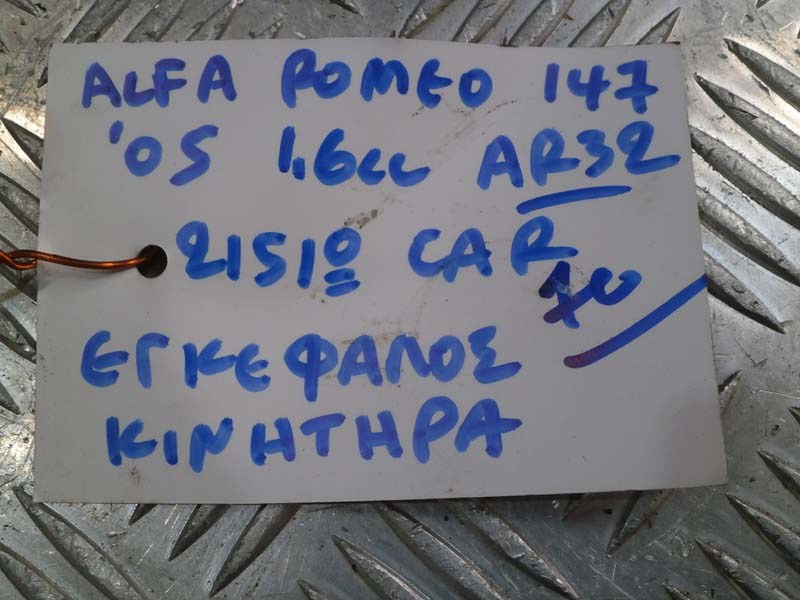 ALFA ROMEO 147
'05 1.6cc AR32
21510 CAR
70
ΕΓΚΕΦΑΛΟΣ
ΚΙΝΗΤΗΡΑ